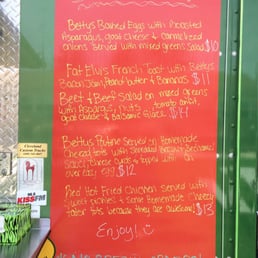 Betty's Baked Eggs with Roasted
Asparagus, goat Cheese & caramelized
onions Served with mixed greens Salad $10
Fat Elvis French Toast with Betty's
Bacon Jam, Peanut butter & Bananas $11
Beet & Beef Salad on mixed greens
with Asparagus, Nuts, tomato
goat Cheese & Balsamic $14
Betty's Poutine Served on Homemade
with Shredded
Sauce, Cheese curds & topped with an
over easy egg $12
Red Hot Fried Chicken served with
Sweet pickles & some Homemade Cheesy
tater tots because they are awesome! $13
Enjoy!
Cleveland
Custom Trucks
96.5
KISSFM